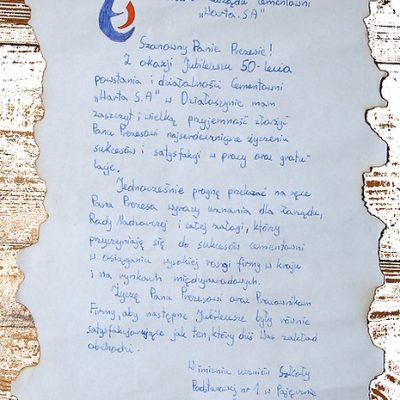 Zarządu Cementowni
„Warta S.A"
Szanowny Panie Prezesie!
Z okazji Jubileuszu 50-lecia
powstania i działalności Cementowni
„Warta S.A" w Działoszynie mam
zaszczyt i wielką przyjemność złożyć
Panu Prezesowi najserdeczniejsze życzenia
sukcesów i satysfakcji w pracy oraz gratu-
lacje.
Jednocześnie pragnę przekazać na ręce
Pana Prezesa wyrazy uznania dla Zarządu,
Rady Nadzorczej i całej załogi, który
przyczyniają się do sukcesów cementowni
w osiąganiu wysokiej rangi firmy w kraju
i na rynkach międzynarodowych.
Życzę Panu Prezesowi oraz Pracownikom
Firmy, aby następne Jubileusze były równie
satysfakcjonujące jak ten, który dziś Wasz zakład
obchodzi.
W imieniu uczniów Szkoły
Podstawowej nr 1 w Pajęcznie